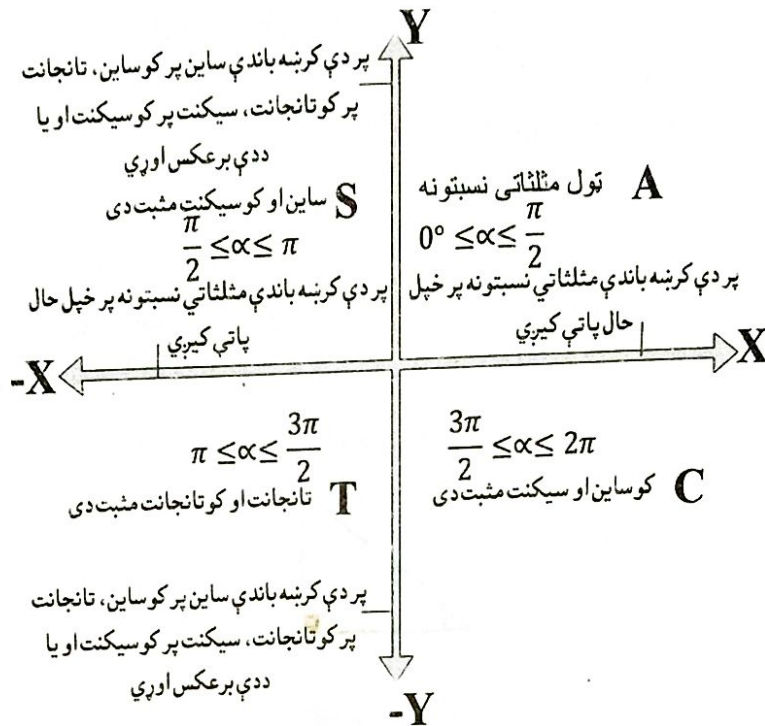 Y
پر دې کرښه باندې ساین پر کوساین، تانجانت
پر کوتانجانت، سیکنت پر کوسیکنت او یا
ددې برعکس اوړي
S ساین او کوسیکنت مثبت دی
π/2 ≤∝≤ π
A ټول مثلثاتی نسبتونه
0° ≤∝≤ π/2
پر دې کرښه باندې مثلثاتي نسبتونه پر خپل
حال پاتې کیږي
X
پر دې کرښه باندې مثلثاتي نسبتونه پر خپل حال
پاتې کیږي
-X
π ≤∝≤ 3π/2
T تانجانت او کوتانجانت مثبت دی
3π/2 ≤∝≤ 2π
C کوساین او سیکنت مثبت دی
پر دې کرښه باندې ساین پر کوساین، تانجانت
پر کوتانجانت، سیکنت پر کوسیکنت او یا
ددې برعکس اوړي
-Y